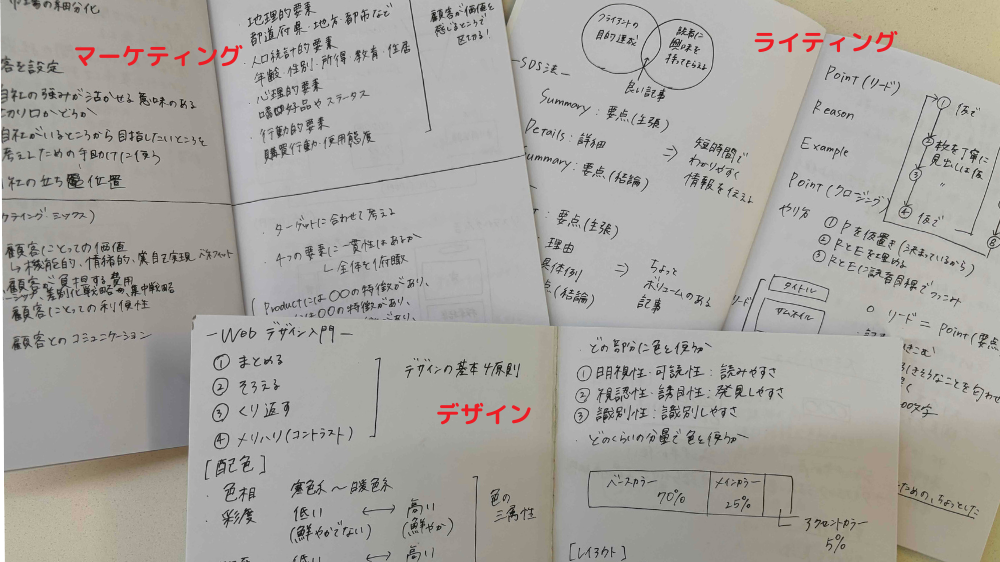 マーケティング
市場の細分化
客を設定
自社の強みが活かせる意味のある
自社がいるところから目指したいところを
考えるための手助けに使う
位置
顧客にとっての価値
↳機能的、情緒的、自己実現ベネフィット
顧客が負担する費用
顧客にとっての利便性
顧客とのコミュニケーション
・地理的要素
都道府県・地方・都市など
・人口統計的要素
年齢・性別・所得・教育・住居
・心理的要素
嗜好品やステータス
・行動的要素
購買行動・使用態度
顧客が価値を
感じるところで
区切る!
・ターゲットに合わせて考える
・4つの要素に一貫性はあるか
↳全体を俯瞰
Productには〇〇の特徴があり、
は〇〇の特徴があり、
ライティング
クライアントの
目的達成
読者に
興味を
持ってもらえる
良い記事
―SDS法―
Summary:要点(主張)
Details:詳細
Summary:要点(結論)
⇒ 短時間で
わかりやすく
情報を伝える
:要点(主張)
:理由
具体例
(結論)
⇒ ちょっと
ボリュームのある
記事
Point(リード)
Reason
Example
Point(クロージング)
① 仮で
② 数を丁寧に
見出しは仮
③ 〃
④ 仮で
やり方
① Pを仮置き(決まっているから)
② RとEを埋める
③ RとEに読者目線で
タイトル
サムネイル
○ リード=Point(要点
デザイン
―Webデザイン入門―
① まとめる
② そろえる
③ くり返す
④ メリハリ(コントラスト)
デザインの基本4原則
[配色]
・色相 寒色系〜暖色系
・彩度 低い ⟷ 高い
(鮮やかでない) (鮮やか)
低い ⟷ 高い
色の
三属性
・どの部分に色を使うか
① 明視性・可読性:読みやすさ
② 視認性・誘目性:発見しやすさ
③ 識別性:識別しやすさ
・どのくらいの分量で色を使うか
ベースカラー
70%
メインカラー
25%
アクセントカラー
5%
[レイアウト]